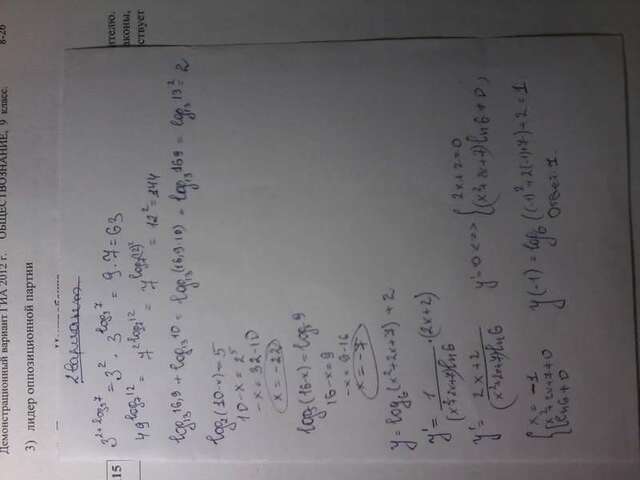 Демонстрационный вариант ГИА 2012 г. ОБЩЕСТВОЗНАНИЕ, 9 класс. 8-26
3) лидер оппозиционной партии
15
2 вариант
3^{2+log_3 7} = 3^2 · 3^{log_3 7} = 9·7 = 63
49^{log_7 12} = 7^{2 log_7 12} = 7^{log_7 (12)^2} = 12^2 = 144
log_{13} 16,9 + log_{13} 10 = log_{13} (16,9·10) = log_{13} 169 = log_{13} 13^2 = 2
log_2 (10-x) = 5
10-x = 2^5
-x = 32-10
x = -22
log_3 (16-x) = log_3 9
16-x = 9
-x = 9-16
x = -7
y = log_6 (x^2+2x+7) + 2
y' = 1/((x^2+2x+7) ln 6) · (2x+2)
y' = (2x+2)/((x^2+2x+7) ln 6) y' = 0 <=> { 2x+2=0
(x^2+2x+7) ln 6 ≠ 0;
{ x = -1
x^2+2x+7 ≠ 0
ln 6 ≠ 0
y(-1) = log_6 ((-1)^2+2(-1)+7)+2 = 1
Ответ: 1.